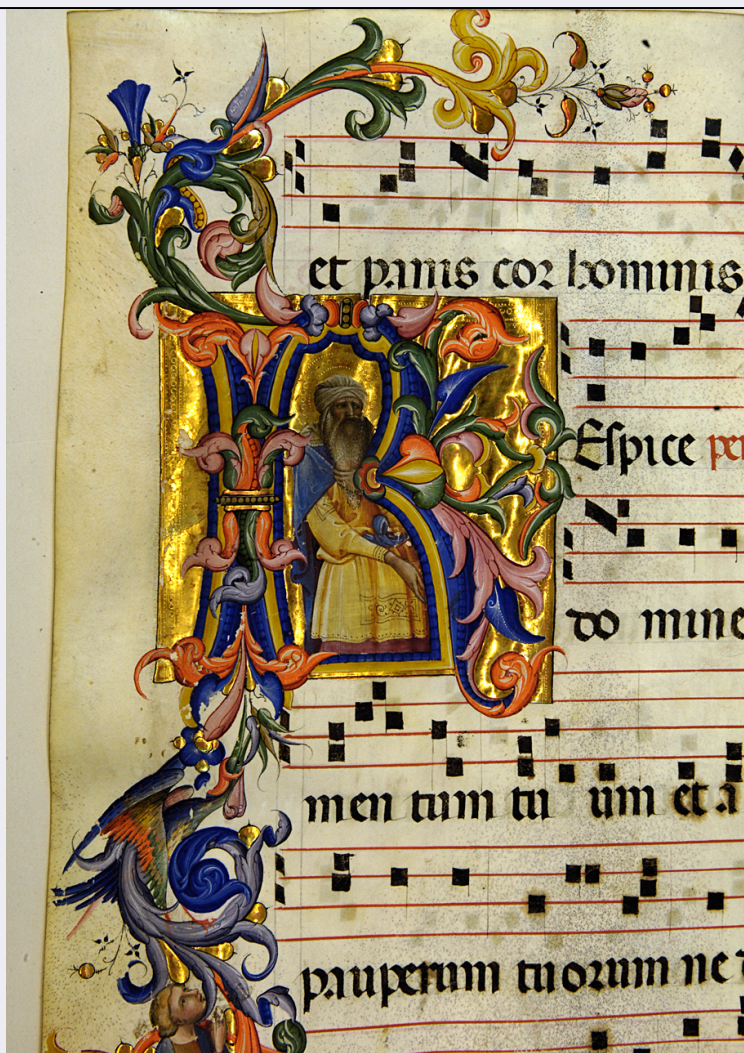 et panis cor hominis
REspice per
do mine
men tum tu um et a
pauperum tuorum ne